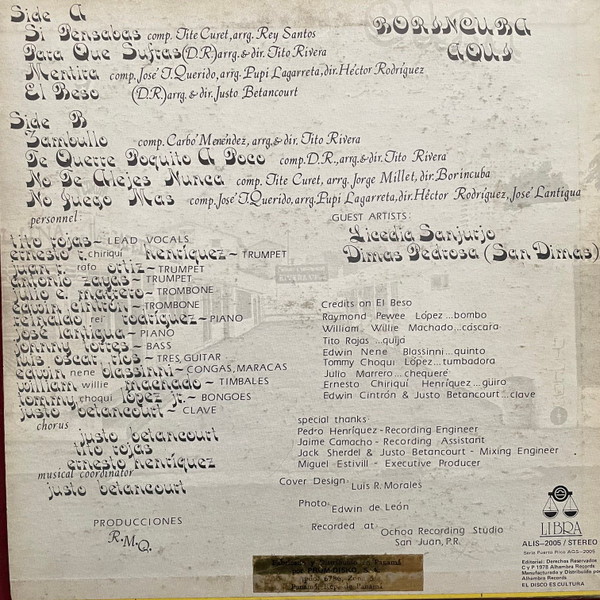 Side A
Si Pensabas comp. Tite Curet, arrg. Rey Santos
Para Que Sufras (D.R.) arrg. & dir. Tito Rivera
Mentira comp. José T. Querido, arrg. Pupi Lagarreta, dir. Héctor Rodríguez
El Beso (D.R.) arrg. & dir. Justo Betancourt
BORINCUBA
AQUI
Side B
Zambullo comp. Carbó Menéndez, arrg. & dir. Tito Rivera
Te Querre Poquito A Poco comp. D.R., arg. & dir. Tito Rivera
No Te Alejes Nunca comp. Tite Curet, arrg. Jorge Millet, dir. Borincuba
No Juego Mas comp. José T. Querido, arrg. Pupi Lagarreta, dir. Héctor Rodríguez, José Lantigua
personnel:
tito rojas ~ LEAD VOCALS
ernesto r. chiriqui henriquez ~ TRUMPET
juan r. rafo ortiz ~ TRUMPET
antonio zayas ~ TRUMPET
julio e. marrero ~ TROMBONE
edwin cintron ~ TROMBONE
reinaldo rei rodriguez ~ PIANO
jose lantigua ~ PIANO
johnny torres ~ BASS
luis oscar rios ~ TRES, GUITAR
edwin nene blassinni ~ CONGAS, MARACAS
william willie machado ~ TIMBALES
tommy choqui lopez jr. ~ BONGOES
justo betancourt ~ CLAVE
chorus
justo betancourt
tito rojas
ernesto henriquez
musical coordinator
justo betancourt
PRODUCCIONES
R.M.Q.
GUEST ARTISTS:
Licedia Sanjurjo
Dimas Pedrosa (San Dimas)
Credits on El Beso
Raymond Pewee López...bombo
William Willie Machado...cáscara
Tito Rojas ...quija
Edwin Nene Blassinni ...quinto
Tommy Choqui López...tumbadora
Julio Marrero ...chequere
Ernesto Chiriquí Henríquez...güiro
Edwin Cintrón & Justo Betancourt...clave
special thanks:
Pedro Henríquez - Recording Engineer
Jaime Camacho - Recording Assistant
Jack Sherdel & Justo Betancourt - Mixing Engineer
Miguel Estivill - Executive Producer
Cover Design: Luis R. Morales
Photo: Edwin de León
Recorded at Ochoa Recording Studio
San Juan, P.R.
LIBRA
ALIS-2005 / STEREO
Serie Puerto Rico AGS-2005
Editorial: Derechos Reservados
C y P 1978 Alhambra Records
Manufacturado y Distribuido por
Alhambra Records
EL DISCO ES CULTURA